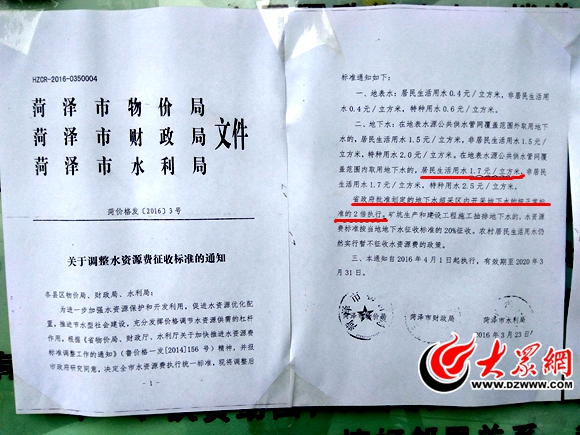 HZCR-2016-0350004
菏泽市物价局
菏泽市财政局
菏泽市水利局
文件
菏价格发〔2016〕3号
关于调整水资源费征收标准的通知
各县区物价局、财政局、水利局:
为进一步加强水资源保护和开发利用，促进水资源优化配
置，推进节水型社会建设，充分发挥价格调节水资源供需的杠杆
作用，根据《省物价局、财政厅、水利厅关于加快推进水资源费
标准调整工作的通知》(鲁价格一发[2014]156号)精神，并报
市政府研究同意，决定全市水资源费执行统一标准，现将调整后
- 1 -
标准通知如下:
一、地表水: 居民生活用水0.4元/立方米，非居民生活用
水0.4元/立方米，特种用水0.6元/立方米。
二、地下水: 在地表水源公共供水管网覆盖范围外取用地下
水的，居民生活用水1.5元/立方米，非居民生活用水1.5元/
立方米，特种用水2.0元/立方米。在地表水源公共供水管网覆
盖范围内取用地下水的，居民生活用水1.7元/立方米，非居民
生活用水1.7元/立方米，特种用水2.5元/立方米。
省政府批准划定的地下水超采区内开采地下水的按正常标
准的2倍执行。矿坑生产和建设工程施工抽排地下水的，水资源
费标准按当地地下水征收标准的20%征收。农村居民生活用水仍
然实行暂不征收水资源费的政策。
三、本通知自2016年4月1日起执行，有效期至2020年3
月31日。
菏泽市物价局
菏泽市财政局
菏泽市水利局
2016年3月23日
大众网
www.dzwww.com